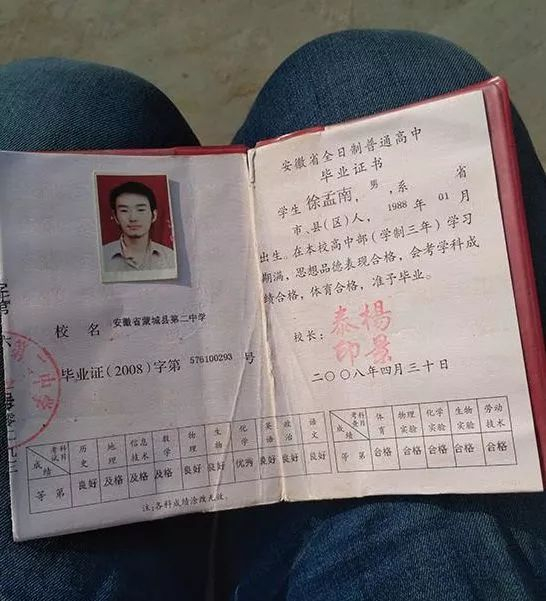 校 名 安徽省蒙城县第二中学
毕业证(2008)字第 576100293 号
考试科目 历史 地理 信息技术 数学 物理 生物 化学 英语 政治 语文
成绩
等第 良好 及格 及格 及格 良好 良好 优秀 良好 良好 良好
注:各科成绩涂改无效。
安徽省全日制普通高中
毕业证书
学生 徐孟南,男,系 省
市、县(区)人, 1988 年 01 月
出生。在本校高中部(学制三年)学习
期满,思想品德表现合格,会考学科成
绩合格,体育合格,准予毕业。
校长:
楊景泰印
二〇〇八年四月三十日
考查科目 体育 物理实验 化学实验 生物实验 劳动技术
成绩
等第 合格 合格 合格 合格 合格